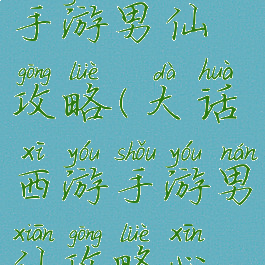 手游男仙
gōng lüè dà huà
攻略(大话
xī yóu shǒu yóu nán
西游手游男
xiān gōng lüè xīn
仙攻略心